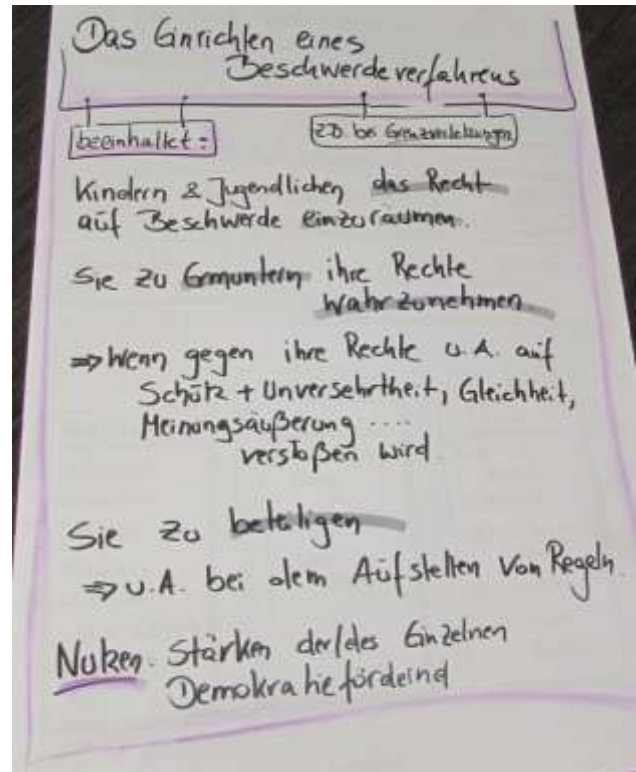 Das Einrichten eines
Beschwerdeverfahrens
beeinhaltet:
z.B. bei Grenzverletzungen
Kindern & Jugendlichen das Recht
auf Beschwerde einzuräumen.
Sie zu Ermuntern ihre Rechte
wahrzunehmen
⇒ Wenn gegen ihre Rechte u.A. auf
Schutz + Unversehrtheit, Gleichheit,
Meinungsäußerung ....
verstoßen wird
Sie zu beteiligen
⇒ u.A. bei dem Aufstellen von Regeln.
Nutzen: Stärken der/des Einzelnen
Demokratiefördernd